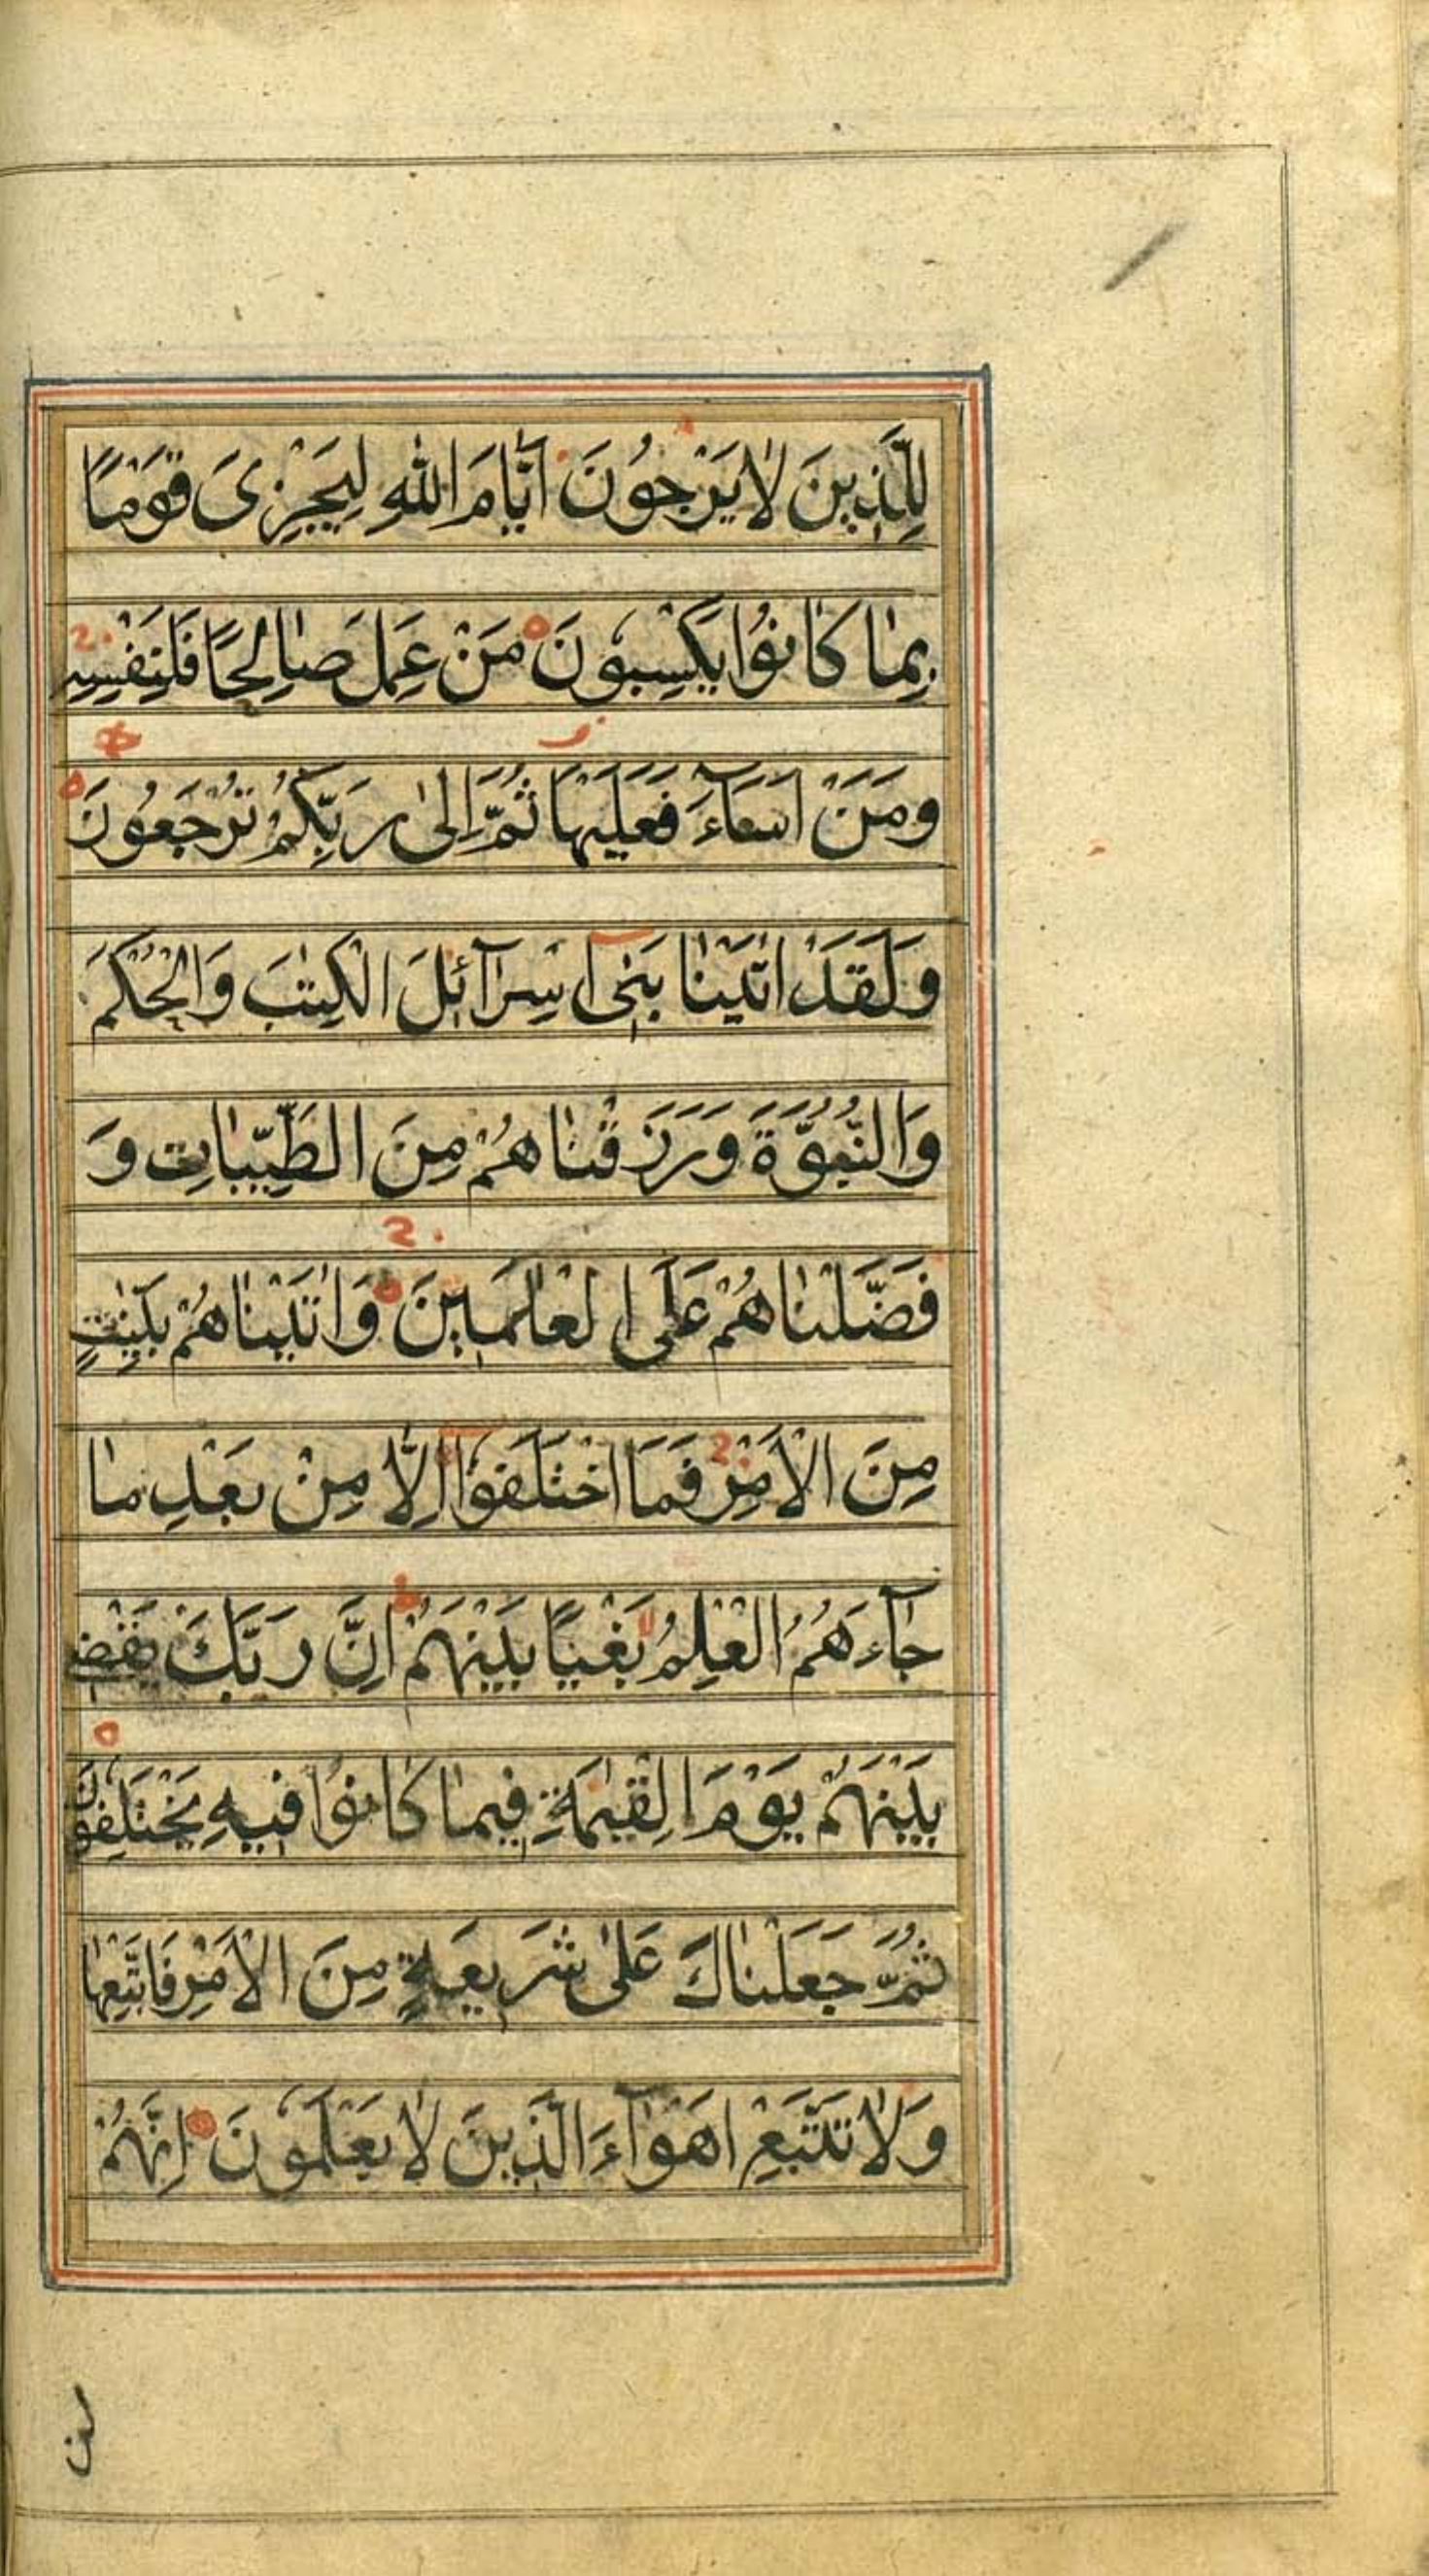 لِلَّذِينَ لَا يَرْجُونَ اَيَّامَ اللّٰهِ لِيَجْزِىَ قَوْمًا
بِمٰا كٰانُوا يَكْسِبُونَ مَنْ عَمِلَ صٰالِحًا فَلِنَفْسِه
وَمَنْ اَسٰآءَ فَعَلَيْهٰا ثُمَّ اِلىٰ رَبِّكُمْ تُرْجَعُونَ
وَلَقَدْ اٰتَيْنٰا بَنِىٓ اِسْرٰآئِلَ الْكِتٰبَ وَالْحُكْمَ
وَالنُّبُوَّةَ وَرَزَقْنٰاهُمْ مِنَ الطَّيِّبٰاتِ وَ
فَضَّلْنٰاهُمْ عَلَى الْعٰالَمِينَ وَاٰتَيْنٰاهُمْ بَيِّنٰتٍ
مِنَ الْاَمْرِ فَمَا اخْتَلَفُوا اِلَّا مِنْ بَعْدِ مٰا
جٰآءَهُمُ الْعِلْمُ بَغْيًا بَيْنَهُمْ اِنَّ رَبَّكَ يَقْضِى
بَيْنَهُمْ يَوْمَ الْقِيٰمَةِ فِيمٰا كٰانُوا فِيهِ يَخْتَلِفُونَ
ثُمَّ جَعَلْنٰاكَ عَلىٰ شَرِيعَةٍ مِنَ الْاَمْرِ فَاتَّبِعْهٰا
وَلٰا تَتَّبِعْ اَهْوٰآءَ الَّذِينَ لٰا يَعْلَمُونَ اِنَّهُمْ
لن